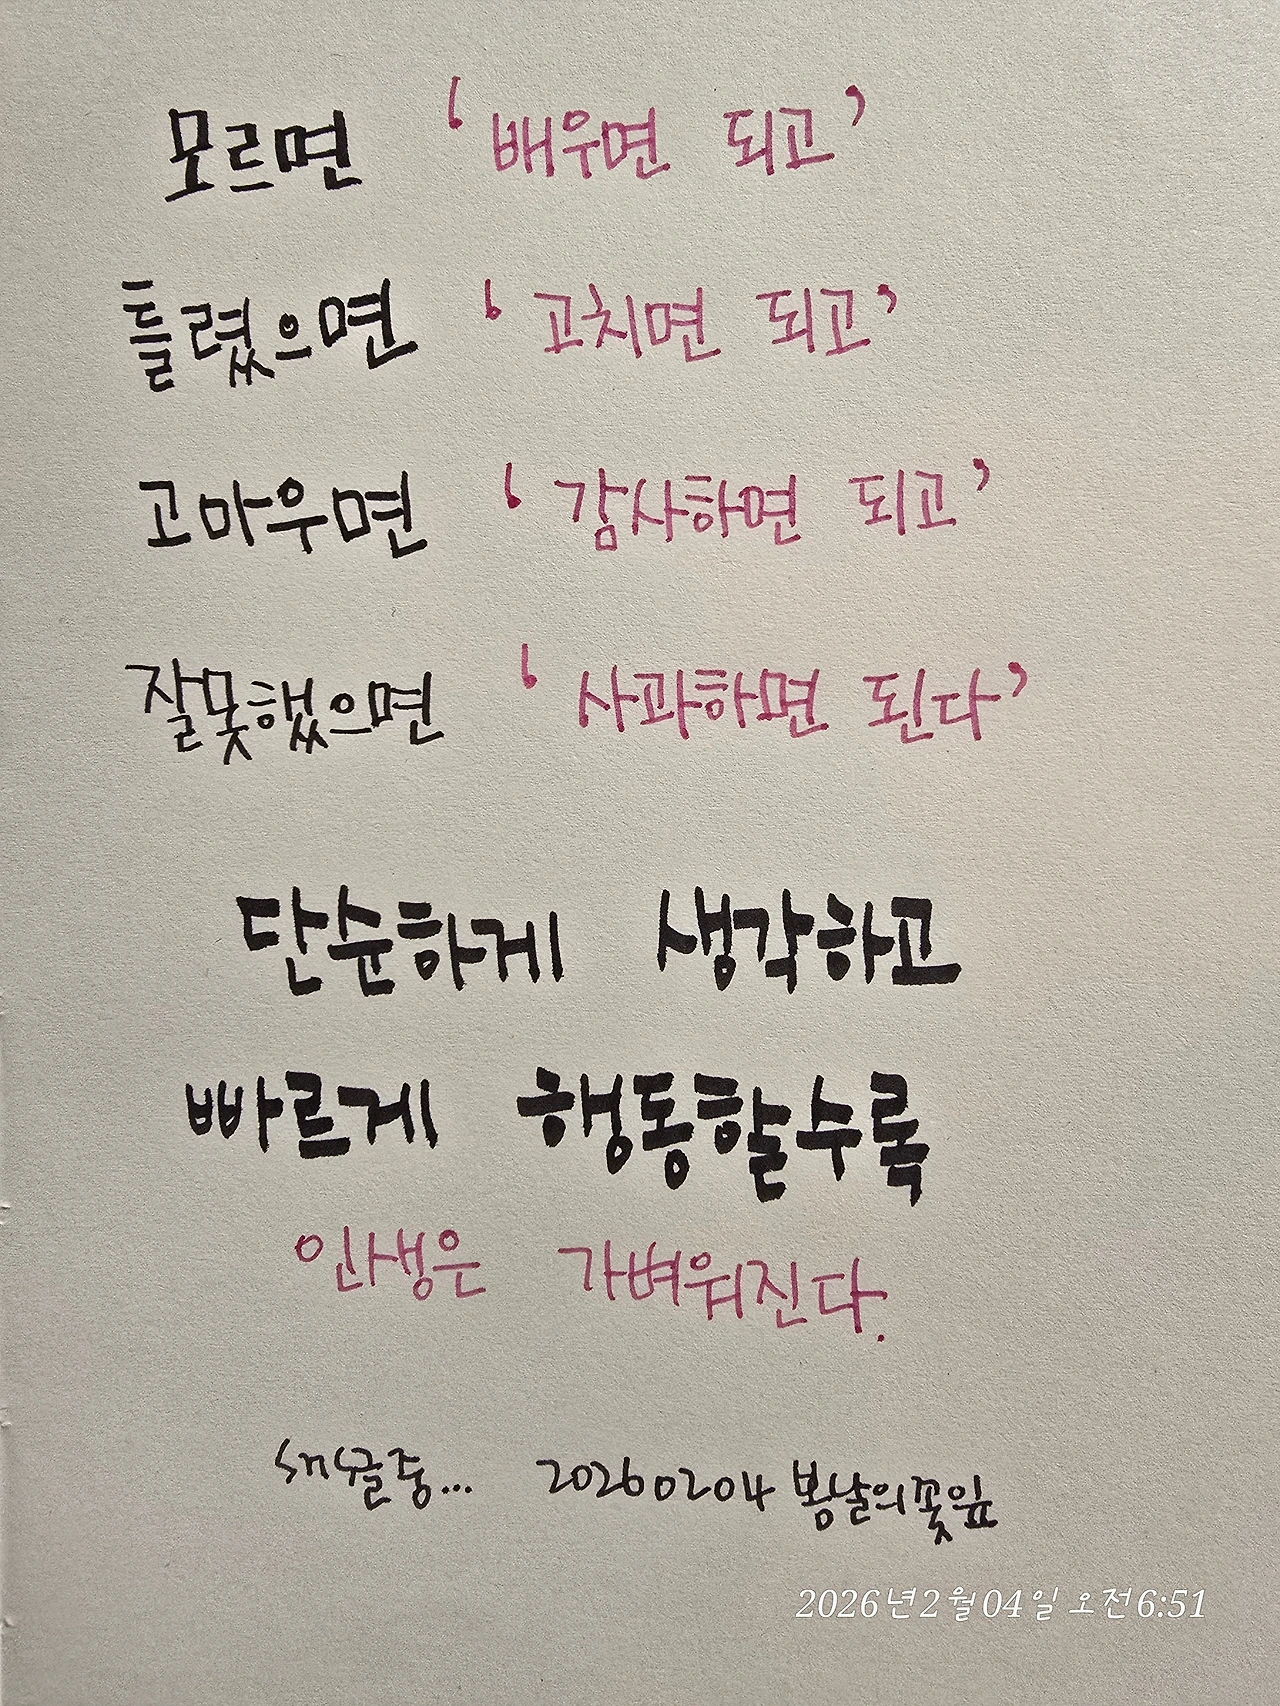 모르면 ‘배우면 되고’
틀렸으면 ‘고치면 되고’
고마우면 ‘감사하면 되고’
잘못했으면 ‘사과하면 된다’
단순하게 생각하고
빠르게 행동할수록
인생은 가벼워진다.
sns글중... 20260204 봄날의꽃잎
2026년2월04일 오전6:51